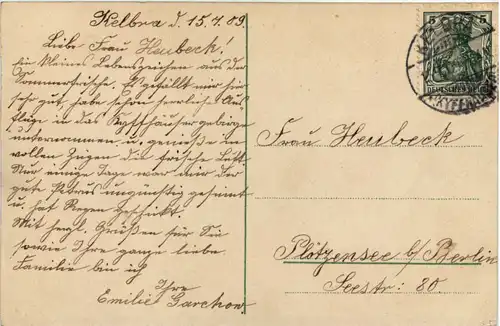 Kelbra d. 15.7.09.
Liebe Frau Heubeck!
Ein kleines Lebenszeichen aus der
Sommerfrische. Es gefällt mir hier
sehr gut, habe schon herrliche Aus-
flüge in das Kyffhäusergebirge
unternommen u. genieße in
vollen Zügen die frische Luft.
Nur einige Tage war mir der
gute Petrus ungünstig gesinnt
u. hat Regen geschickt.
Mit herzl. Grüßen für Sie
sowie Ihre ganze liebe
Familie bin ich
Ihre
Emilie Garchow
5 5
DEUTSCHES REICH
KELBRA
(KYFFH
Frau Heubeck
Plötzensee b/Berlin
Seestr: 80.